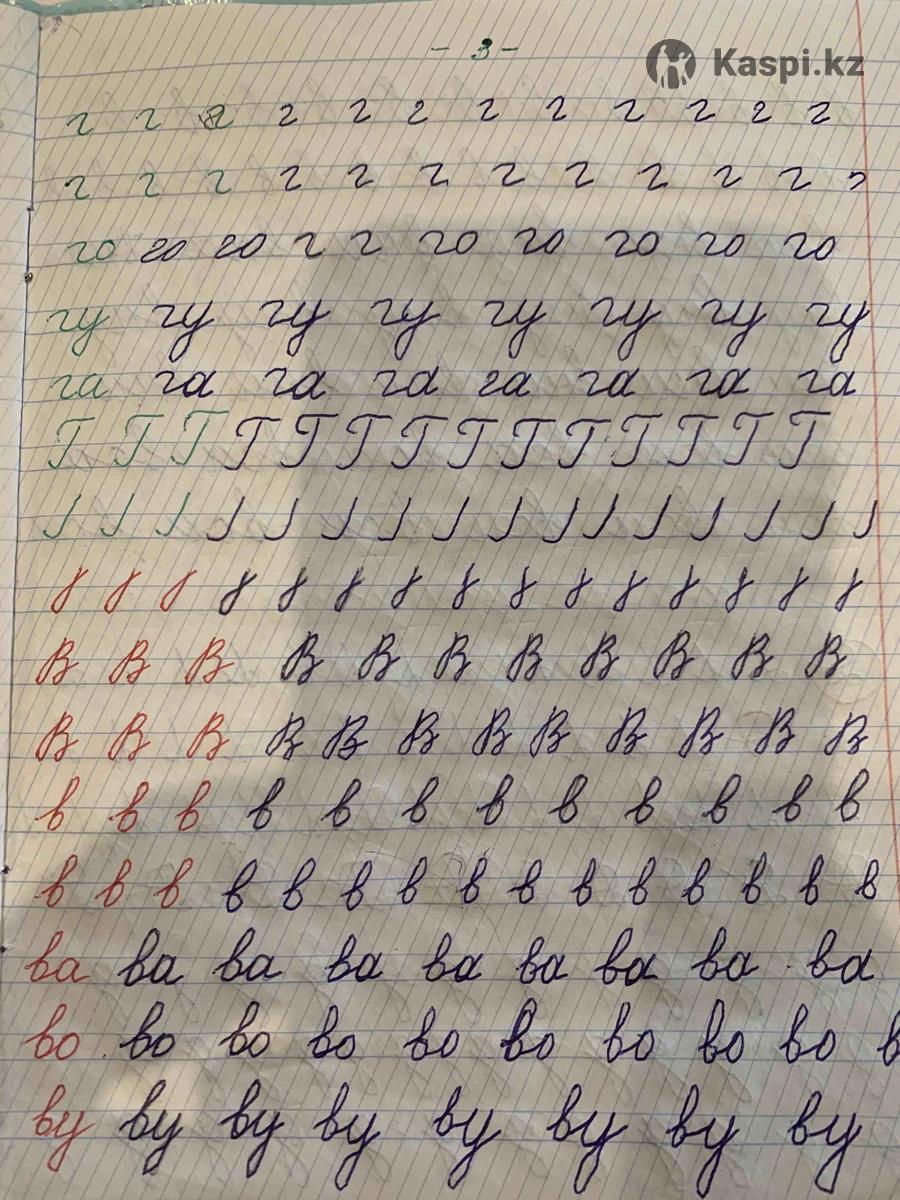 - 3 -
Kaspi.kz
г г г г г г г г г г г г
г г г г г г г г г г г г
го го го г г го го го го го
гу гу гу гу гу гу гу гу
га га га га га га га га
Г Г Г Г Г Г Г Г Г Г Г Г Г Г
В В В В В В В В В В В
В В В В В В В В В В В В
в в в в в в в в в в в в
в в в в в в в в в в в в в в
ва ва ва ва ва ва ва ва ва
во во во во во во во во во в
ву ву ву ву ву ву ву ву